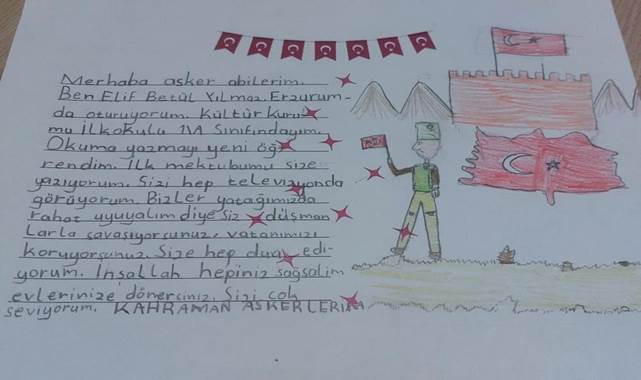 Merhaba asker abilerim.
Ben Elif Betül Yılmaz. Erzurum-
da oturuyorum. Kültür Kuru
mu İlkokulu 1/A Sınıfındayım.
Okuma yazmayı yeni öğ
rendim. İlk mektubumu size
yazıyorum. Sizi hep televizyonda
görüyorum. Bizler yatağımızda
rahat uyuyalım diye siz düşman
larla savaşıyorsunuz, vatanımızı
koruyorsunuz. Size hep dua edi-
yorum. İnşallah hepiniz sağsalim
evlerinize dönersiniz. Sizi çok
seviyorum. KAHRAMAN ASKERLERİM